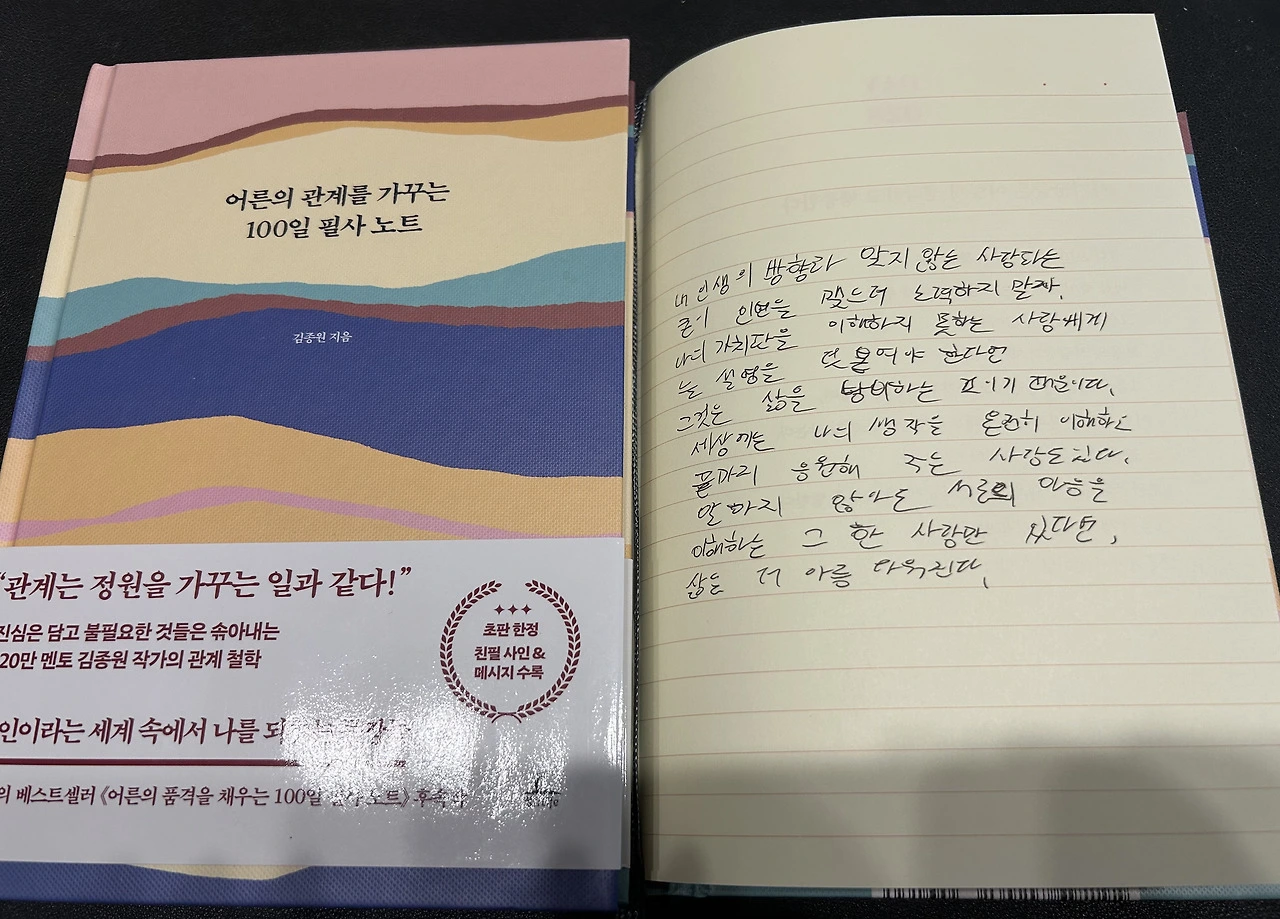 어른의 관계를 가꾸는
100일 필사 노트
김종원 지음
“관계는 정원을 가꾸는 일과 같다!”
진심은 담고 불필요한 것들은 솎아내는
20만 멘토 김종원 작가의 관계 철학
초판 한정
친필 사인 &
메시지 수록
인이라는 세계 속에서 나를
의 베스트셀러 《어른의 품격을 채우는 100일 필사 노트》 후속작
내 인생의 방향과 맞지 않는 사람과는
굳이 인연을 맺으려 노력하지 말자.
나의 가치관을 이해하지 못하는 사람에게
늘 설명을 덧붙여야 한다면
그것은 삶을 낭비하는 일이기 때문이다.
세상에는 나의 생각을 온전히 이해하고
끝까지 응원해 주는 사람도 있다.
말하지 않아도 서로의 마음을
이해하는 그 한 사람만 있다면,
삶은 더 아름다워진다.